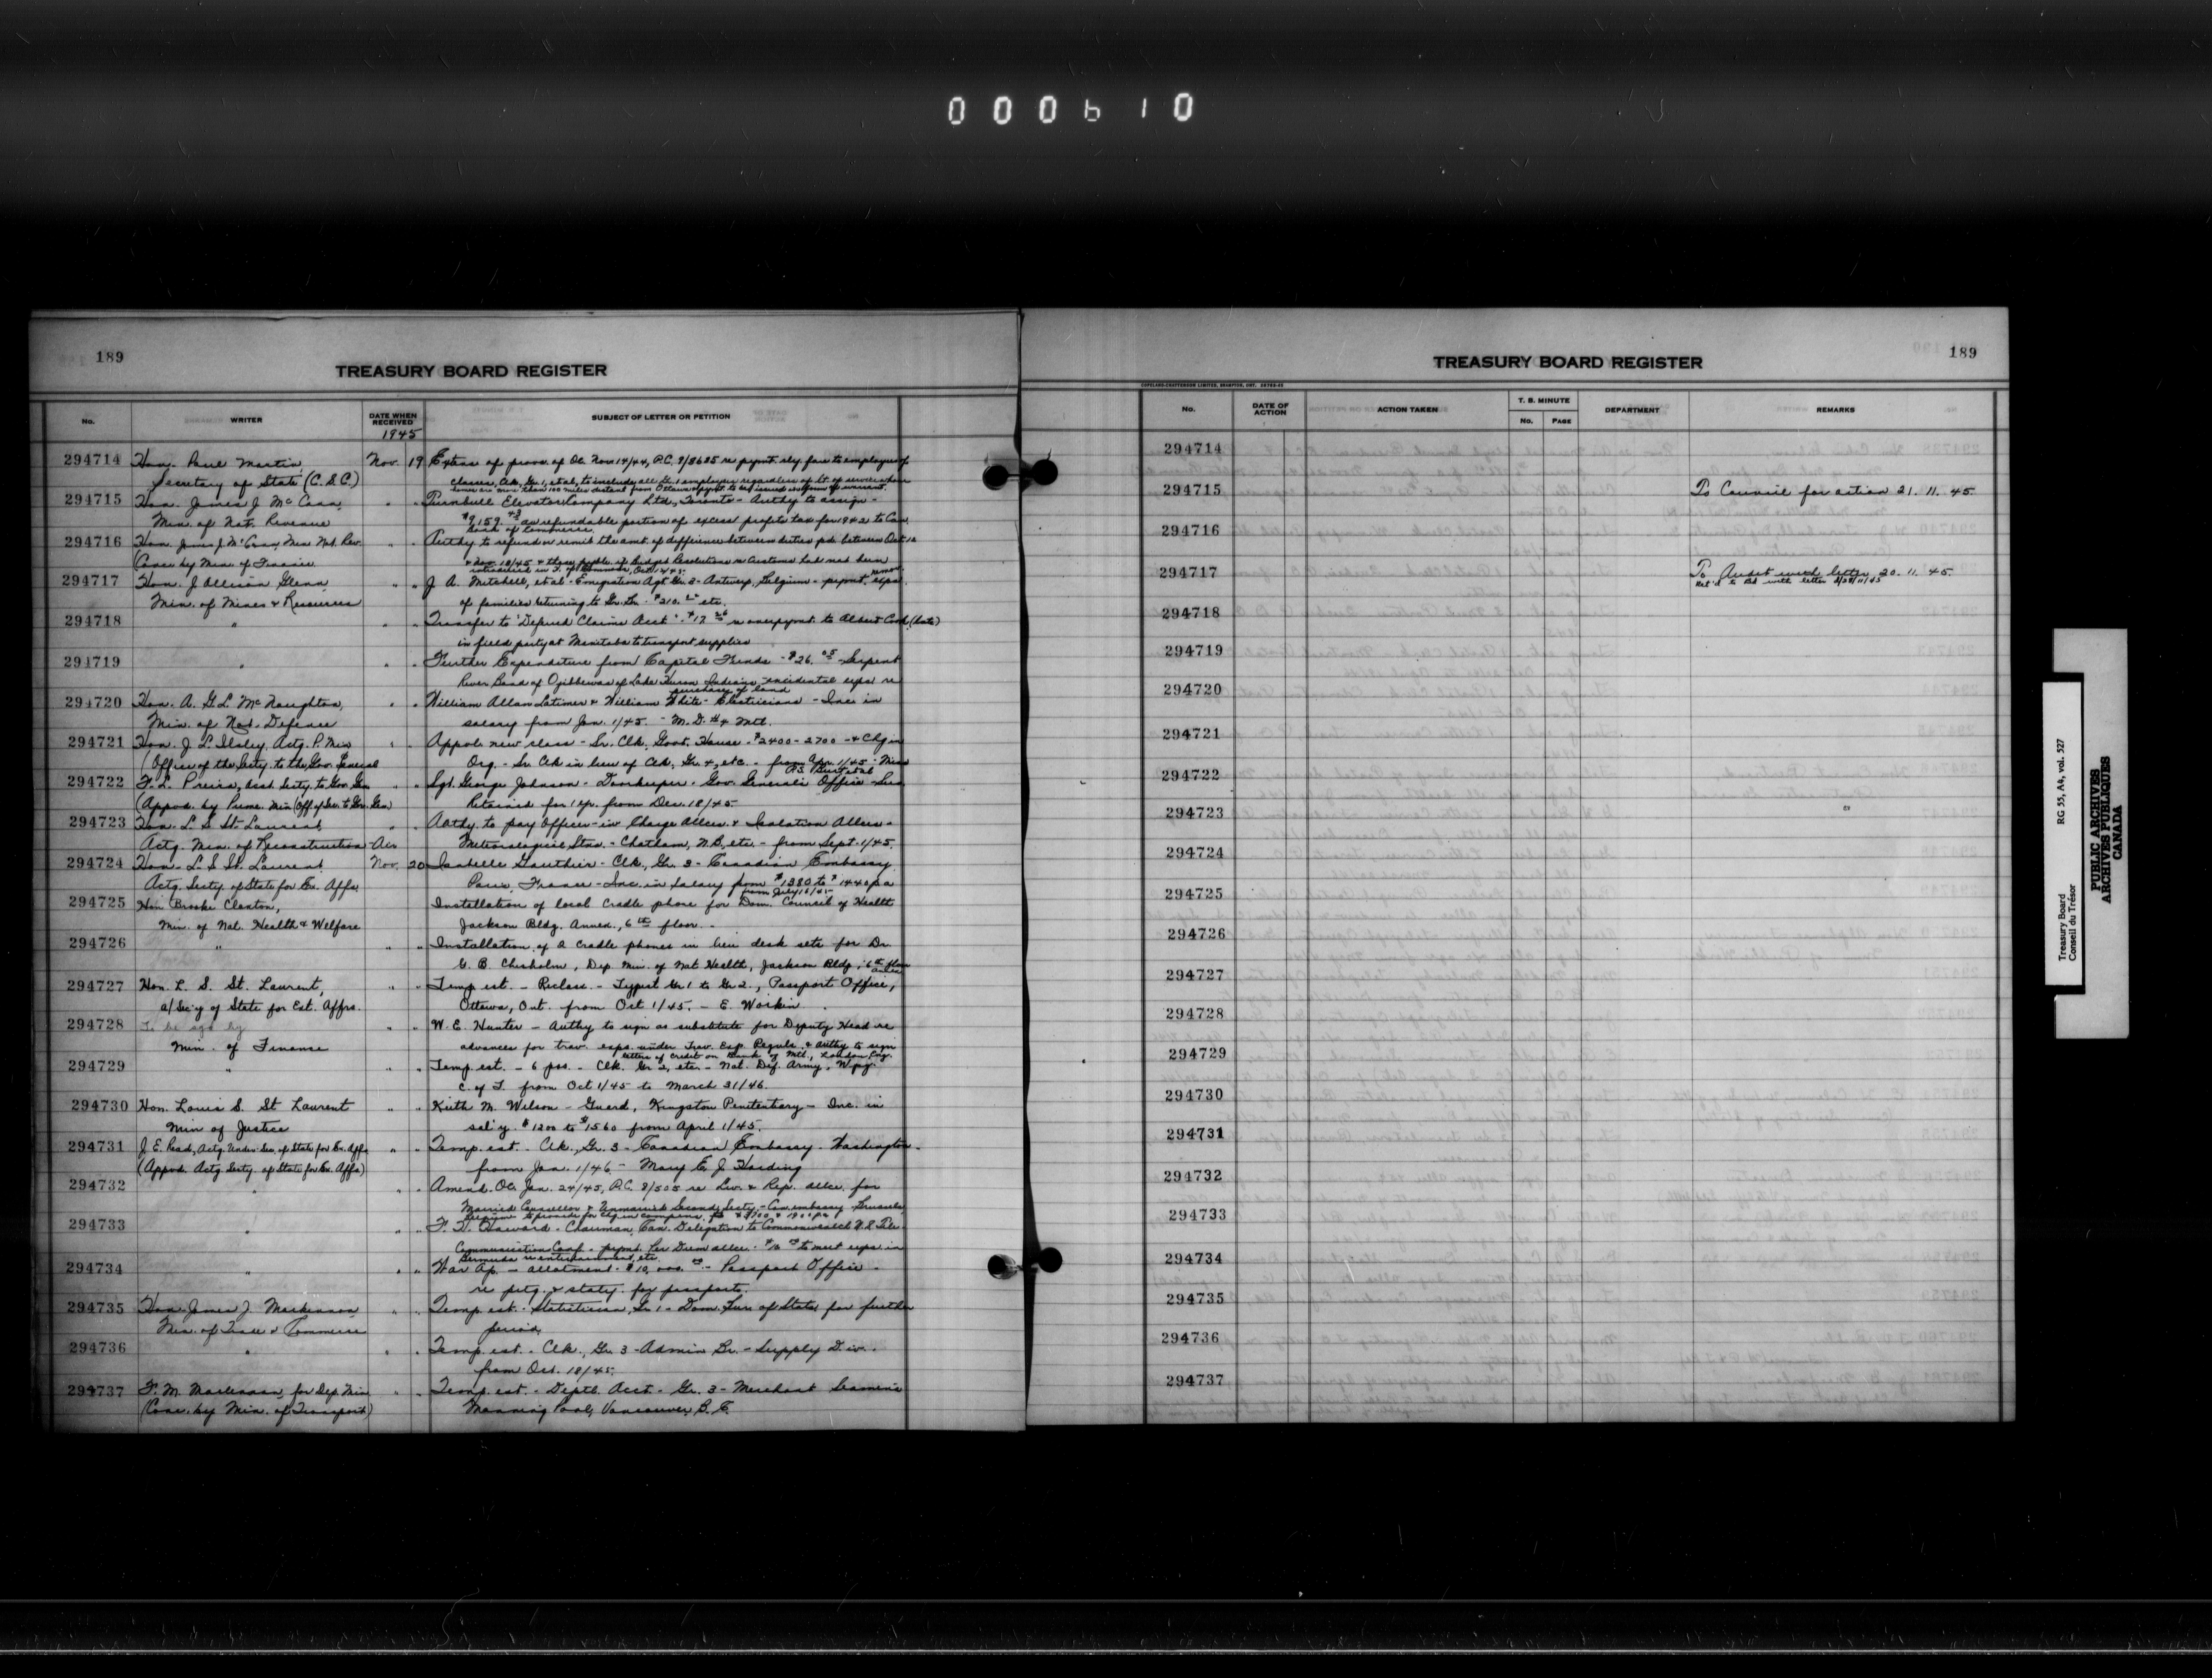 000610
189
TREASURY BOARD REGISTER
No. WRITER DATE WHEN RECEIVED SUBJECT OF LETTER OR PETITION
1945
294714 Hon. Paul Martin, Nov. 19 Extns of provs. of OC Nov. 14/44, P.C. 9/8685 re paymt. rly fare to employees of
Secretary of State (C.S.C.) classes, Clk. Gr. 1, et al, to include all Gr. 1 employees regardless of lt. of service where
homes are more than 100 miles distant from Ottawa & paymt. to be issued in form of warrant.
294715 Hon. James J. McCann, " " Turnbull Elevator Company Ltd., Toronto - Authy to assign -
Min. of Nat. Revenue $9,159.43 as refundable portion of excess profits tax for 1942 to Can.
Bank of Commerce.
294716 Hon. James J. McCann, Min. Nat. Rev. " " Authy to refund or remit the amt. of difference between duties pd. between Oct. 12
(Conc. by Min. of Finance & Nov. 18/45 & those payble. if Budget Resolutions re Customs had not been
introduced in H. of Commons, Oct. 12/45.
294717 Hon. J. Allison Glenn, " " J. A. Mitchell, et al - Emigration Agt. Gr. 2 - Antwerp, Belgium - paymt. remov. exps.
Min. of Mines & Resources of families returning to Gr. Br. - $210.00 etc.
294718 " " " Transfer to "Deferred Claims Acct." - $17.26 re overpaymt. to Albert Cook (late)
in field party at Manitoba to transport supplies
294719 " " " Further Expenditure from Capital Funds - $26.05 - Serpent
River Band of Ojibbewas of Lake Huron Indians - incidental exps. re
purchase of land
294720 Hon. A. G. L. McNaughton, " " William Allan Latimer & William White - Electricians - Inc. in
Min. of Nat. Defence salary from Jan. 1/45. - M.D. #4 Mtl.
294721 Hon. J. L. Ilsley, Actg. P. Min. " " Appvl. new class - Sr. Clk. Govt. House - $2400-2700 - & Chg. in
(Office of the Secty. to the Gov. General Org. - Sr. Clk in lieu of Clk, Gr. 4, etc. - from Apr. 1/45 - Miss
294722 F. L. Pereira, Asst. Secty. to Gov. Gen. " " Sgt. George Johnson - Doorkeeper - Gov. General's Office - Svs.
(Appvd. by Prime Min. (Off. of Sec. to Gov. Gen.) Retained for 1 yr. from Dec. 18/45
294723 Hon. L. S. St. Laurent, " " Authy to pay Officer-in-Charge Allce. & Isolation Allce. -
Actg. Min. of Reconstruction - Air Meteorological Stns. - Chatham, N.B., etc. - from Sept. 1/45.
294724 Hon. L. S. St. Laurent, Nov. 20 Isabelle Gauthier - Clk., Gr. 3 - Canadian Embassy
Actg. Secty. of State for Ex. Affs. Paris, France - Inc. in salary from $1380 to $1440 pa
from July 16/45
294725 Hon. Brooke Claxton, Installation of local cradle phone for Dom. Council of Health
Min. of Nat. Health & Welfare Jackson Bldg. Annex., 6th floor. -
294726 " " " Installation of 2 cradle phones in lieu desk sets for Dr.
G. B. Chisholm, Dep. Min. of Nat Health, Jackson Bldg., 6th floor
annex
294727 Hon. L. S. St. Laurent, " " Temp est. - Reclass. - Typist Gr 1 to Gr 2., Passport Office,
a/Sec'y of State for Ext. Affrs. Ottawa, Ont. from Oct 1/45. - E. Workin
294728 To be sgd by " " W. E. Hunter - Authy to sign as substitute for Deputy Head re
Min. of Finance advances for trav. exps. under Trav. Exp. Reguls. & authy to sign
letters of credit on Bank of Mtl., London Eng.
294729 " " " Temp. est. - 6 pos. - Clk. Gr 2, etc. - Nat. Def. Army, W'peg.
C. of T. from Oct 1/45 to March 31/46.
294730 Hon. Louis S. St Laurent " " Keith M. Wilson - Guard, Kingston Penitentiary - Inc. in
Min of Justice sal'y. $1200 to $1560 from April 1/45.
294731 J. E. Read, Actg. Under-Sec. of State for Ex. Affs. " " Temp. est. - Clk., Gr. 3 - Canadian Embassy - Washington -
(Appvd. Actg. Secty. of State for Ex. Affs.) from Jan. 1/46 - Mary E. J. Harding
294732 " " " Amend. OC Jan. 24/45, P.C. 9/505 re Liv. & Rep. allce. for
Married Counsellor & Unmarried Second Secty. - Can. embassy - Brussels,
294733 " " " Chairman, Can. Delegation to Commonwealth U.S. Tele-
Communication Conf. - paymt. Per Diem allce. to meet exps. in
Bermuda re entertainment, etc.
294734 " " " War Ap. - allotment - $10,000.00 - Passport Office -
re prtg. & staty. for passports.
294735 Hon. James J. MacKinnon " " Temp. est. - Statistician, Gr 1 - Dom. Bur. of Stats. for further
Min. of Trade & Commerce period.
294736 " " " Temp. est. - Clk., Gr. 3 - Admin. Br. - Supply Div. -
from Oct. 18/45.
294737 F. M. MacLennan, for Dep. Min. " " Temp. est. - Deptl. Acct. - Gr. 3 - Merchant Seamen's
(Conc. by Min. of Transport) Manning Pool, Vancouver, B.C.
189
TREASURY BOARD REGISTER
COPELAND-CHATTERSON LIMITED, BRAMPTON, ONT.
No. DATE OF ACTION ACTION TAKEN T. B. MINUTE No. PAGE DEPARTMENT REMARKS
294714
294715 To Council for action 21. 11. 45.
294716
294717 To Audit with letter 20. 11. 45.
294718
294719
294720
294721
294722
294723
294724
294725
294726
294727
294728
294729
294730
294731
294732
294733
294734
294735
294736
294737
Treasury Board RG 55, A4, vol. 527
Conseil du Trésor
PUBLIC ARCHIVES
ARCHIVES PUBLIQUES
CANADA